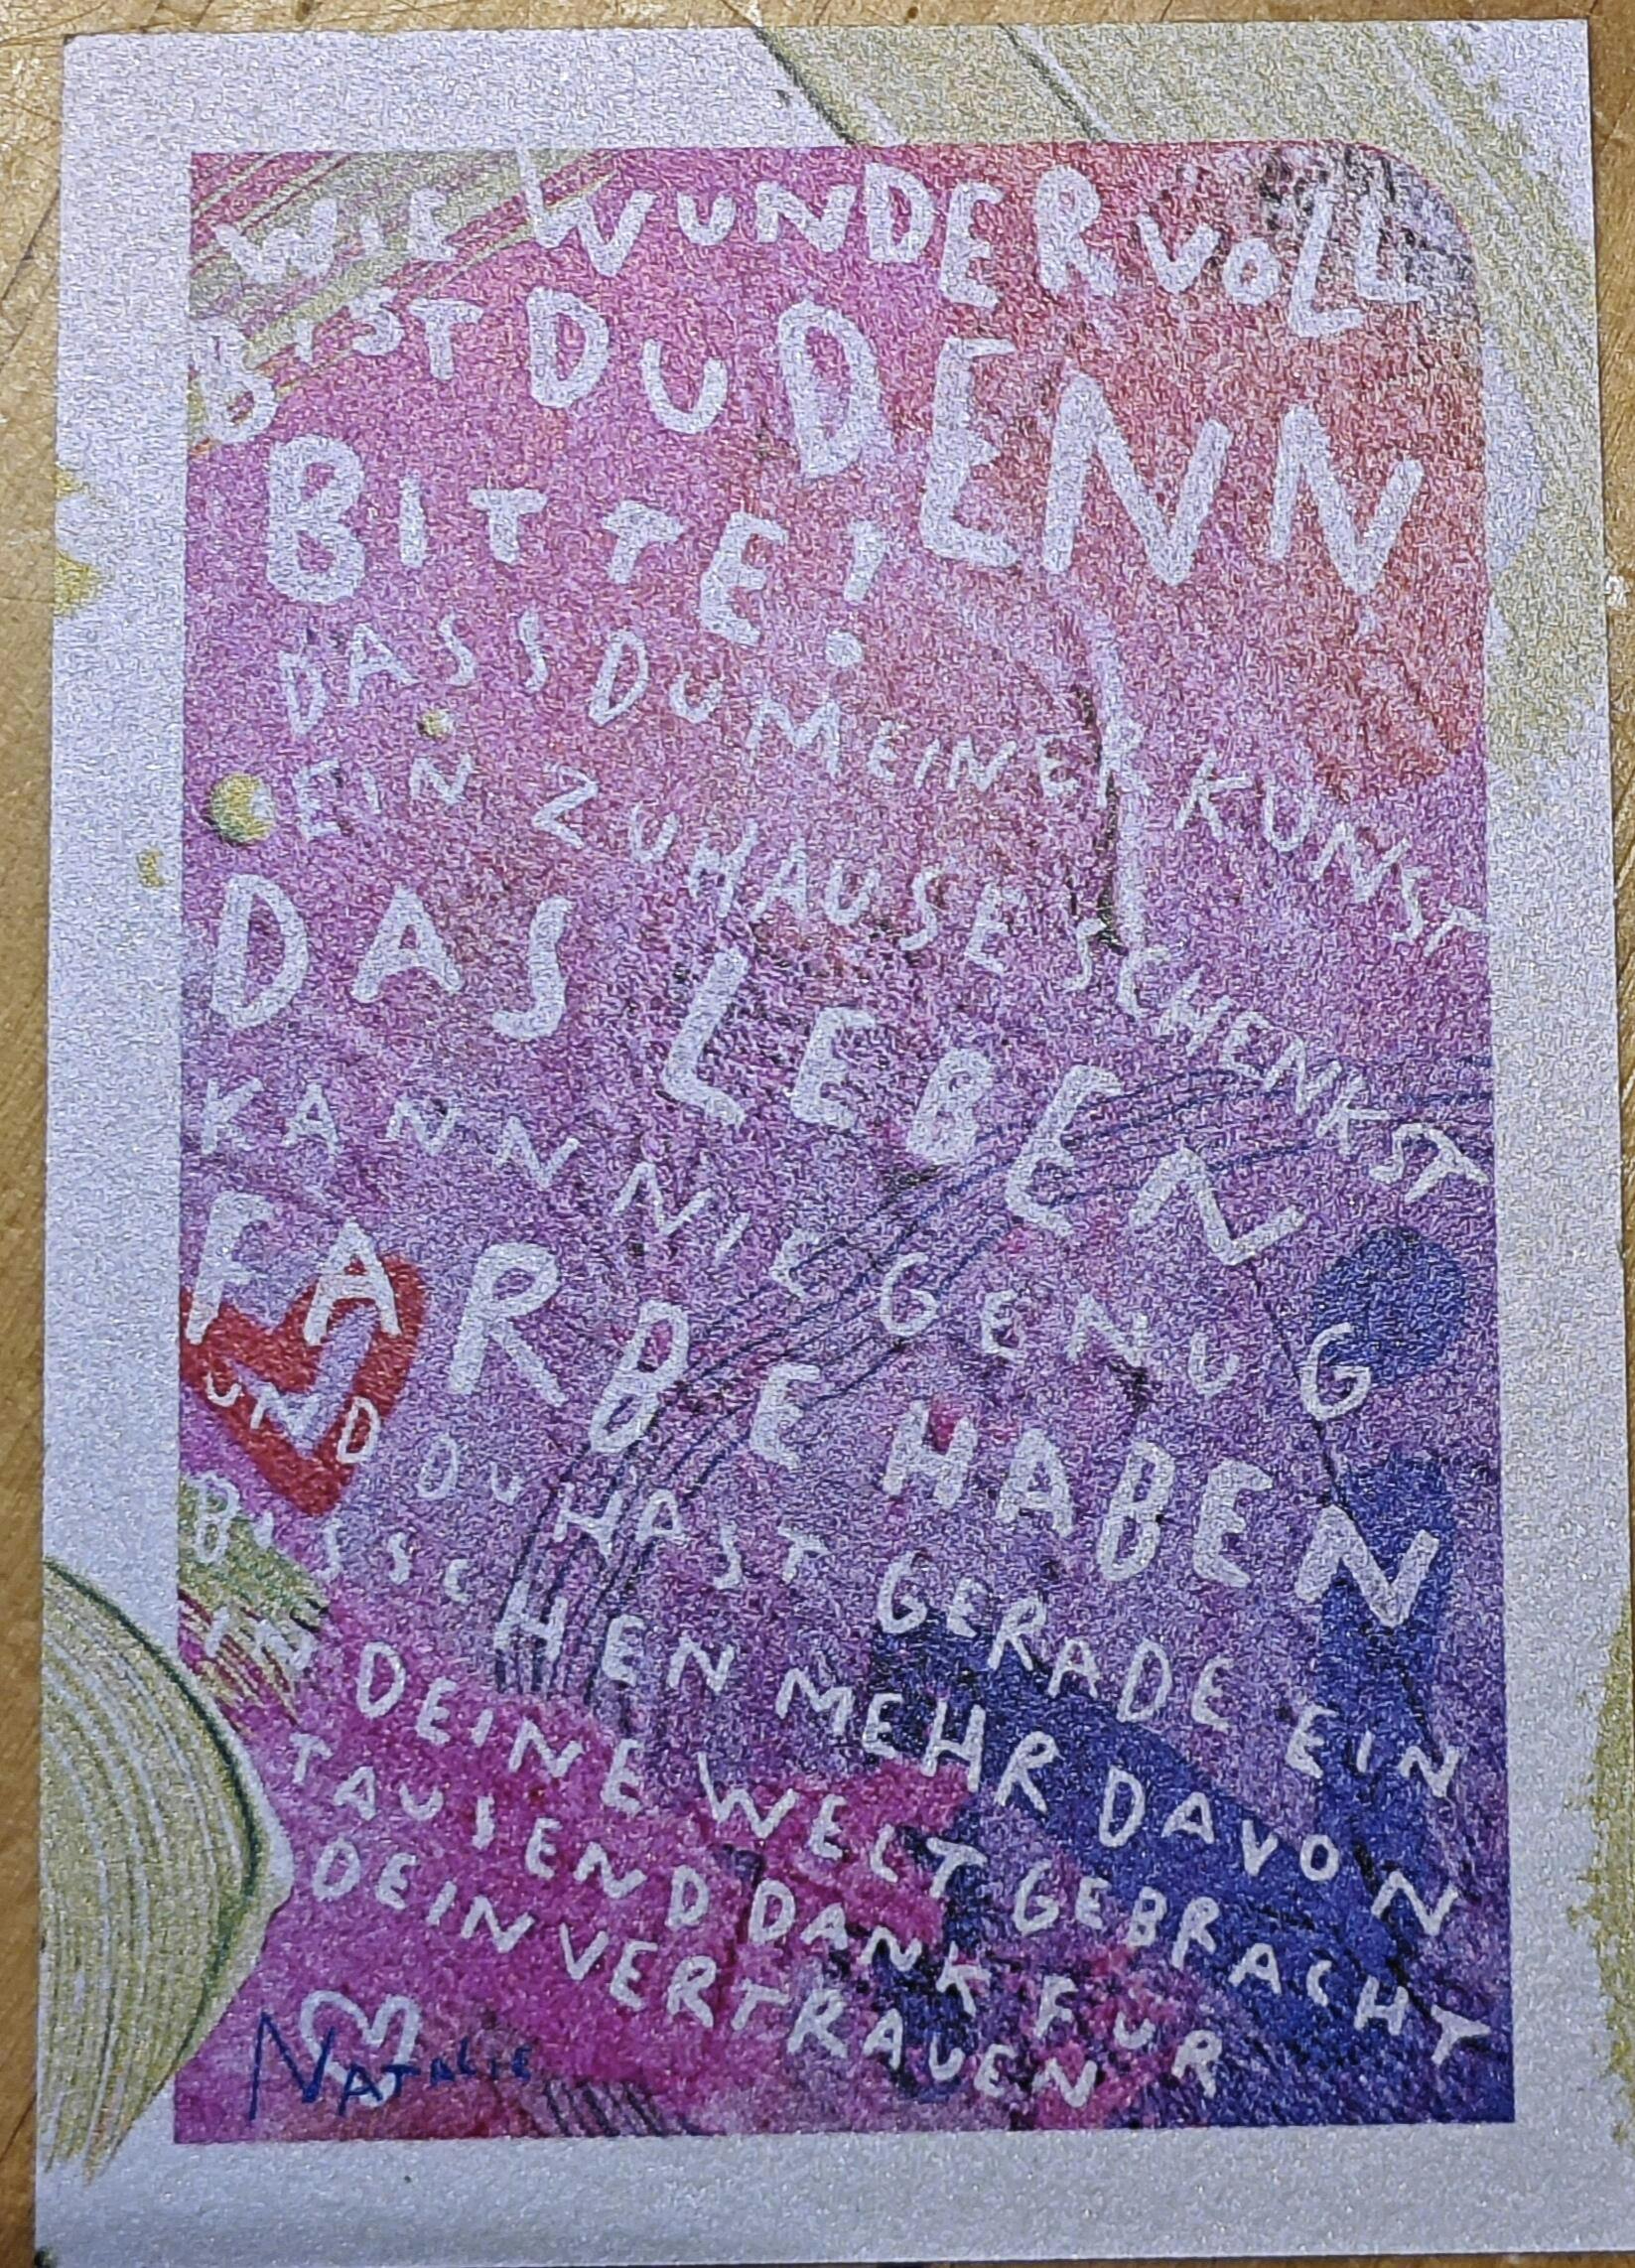 WIE WUNDERVOLL
BIST DU DENN
BITTE!
DASS DU MEINER KUNST
EIN ZUHAUSE SCHENKST
DAS LEBEN
KANN NIE GENUG
FARBE HABEN
UND DU HAST GERADE EIN
BISSCHEN MEHR DAVON
IN DEINE WELT GEBRACHT
TAUSEND DANK FUR
DEIN VERTRAUEN
NATALIE